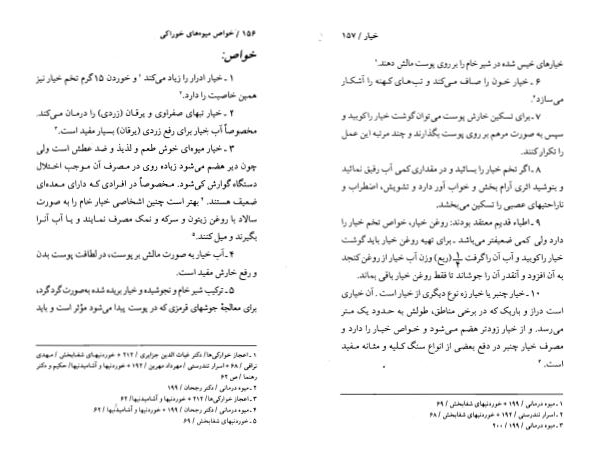 ۱۵۶ / خواص میوه‌های خوراکی
خواص:
۱ ـ خیار ادرار را زیاد می‌کند ۱ و خوردن ۱۵ گرم تخم خیار نیز
همین خاصیت را دارد.۲
۲ ـ خیار تبهای صفراوی و یرقان (زردی) را درمان می‌کند.
مخصوصاً آب خیار برای رفع زردی (یرقان) بسیار مفید است.۳
۳ ـ خیار میوه‌ای خوش طعم و لذیذ و ضد عطش است ولی
چون دیر هضم می‌شود زیاده روی در مصرف آن موجب اختلال
دستگاه گوارش می‌شود. مخصوصاً در افرادی که دارای معده‌ای
ضعیف هستند.۴ بهتر است چنین اشخاصی خیار خام را به صورت
سالاد با روغن زیتون و سرکه و نمک مصرف نمایند و یا آب آنرا
بگیرند و میل کنند.۵
۴ ـ آب خیار به صورت مالش بر پوست، در لطافت پوست بدن
و رفع خارش مفید است.
۵ ـ ترکیب شیر خام و نجوشیده و خیار بریده شده به‌صورت گرد گرد،
برای معالجهٔ جوشهای قرمزی که در پوست پیدا می‌شود مؤثر است و باید
۱ ـ اعجاز خوراکی‌ها / دکتر غیاث الدین جزایری / ۲۱۲ * خوردنیهای شفابخش / مهدی
نراقی / ۶۸ * اسرار تندرستی / مهرداد مهرین / ۱۹۲ * خوردنیها و آشامیدنیها / حکیم و دکتر
رهنما / ص ۶۲
۲ ـ میوه درمانی / دکتر رجحان / ۱۹۹
۳ ـ اعجاز خوراکی‌ها / ۲۱۲ * خوردنیها و آشامیدنیها / ۶۲
۴ ـ میوه درمانی / دکتر رجحان / ۱۹۹ * خوردنیها و آشامیدنیها / ۶۲
۵ ـ خوردنیهای شفابخش / ۶۹
خیار / ۱۵۷
خیارهای خیس شده در شیر خام را بر روی پوست مالش دهند.۱
۶ ـ خیار خون را صاف می‌کند و تب‌های کهنه را آشکار
می‌سازد.۲
۷ ـ برای تسکین خارش پوست می‌توان گوشت خیار را کوبید و
سپس به صورت مرهم بر روی پوست بگذارند و چند مرتبه این عمل
را تکرار کنند.
۸ ـ اگر تخم خیار را بسائید و در مقداری کمی آب رقیق نمائید
و بنوشید اثری آرام بخش و خواب آور دارد و تشویش، اضطراب و
ناراحتیهای عصبی را تسکین می‌بخشد.
۹ ـ اطباء قدیم معتقد بودند: روغن خیار، خواص تخم خیار را
دارد ولی کمی ضعیفتر می‌باشد ـ برای تهیه روغن خیار باید گوشت
خیار را کوبید و آب آن را گرفت ۱/۴ (ربع) وزن آب خیار از روغن کنجد
به آن افزود و آنقدر آن را جوشاند تا فقط روغن خیار باقی بماند.
۱۰ ـ خیار چنبر یا خیار زه نوع دیگری از خیار است. آن خیاری
است دراز و باریک که در برخی مناطق، طولش به حدود یک متر
می‌رسد. و از خیار زودتر هضم می‌شود و خواص خیار را دارد و
مصرف خیار چنبر در دفع بعضی از انواع سنگ کلیه و مثانه مفید
است.۳
۱ ـ میوه درمانی / ۱۹۹ * خوردنیهای شفابخش / ۶۹
۲ ـ اسرار تندرستی / ۱۹۲ * خوردنیهای شفابخش / ۶۸
۳ ـ میوه درمانی / ۱۹۹ / ۲۰۰